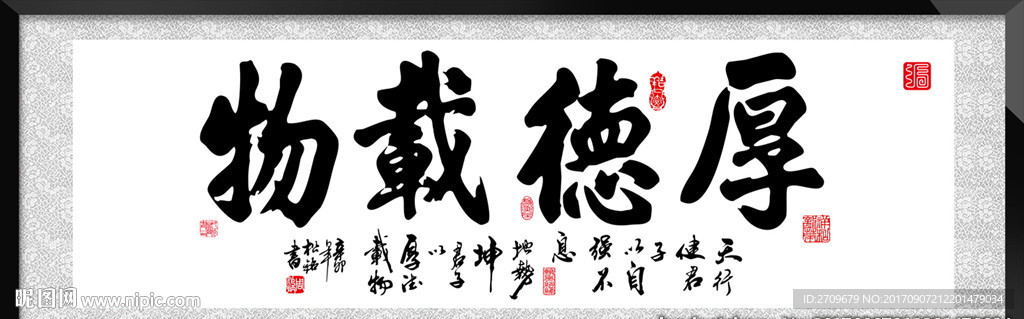 厚德載物
天行
健君
子
以自
强不
息
地勢
坤
君子
以
厚德
載物
辛卯
年
書
昵图网 www.nipic.com
ID:2709679 NO:20170907212201479034